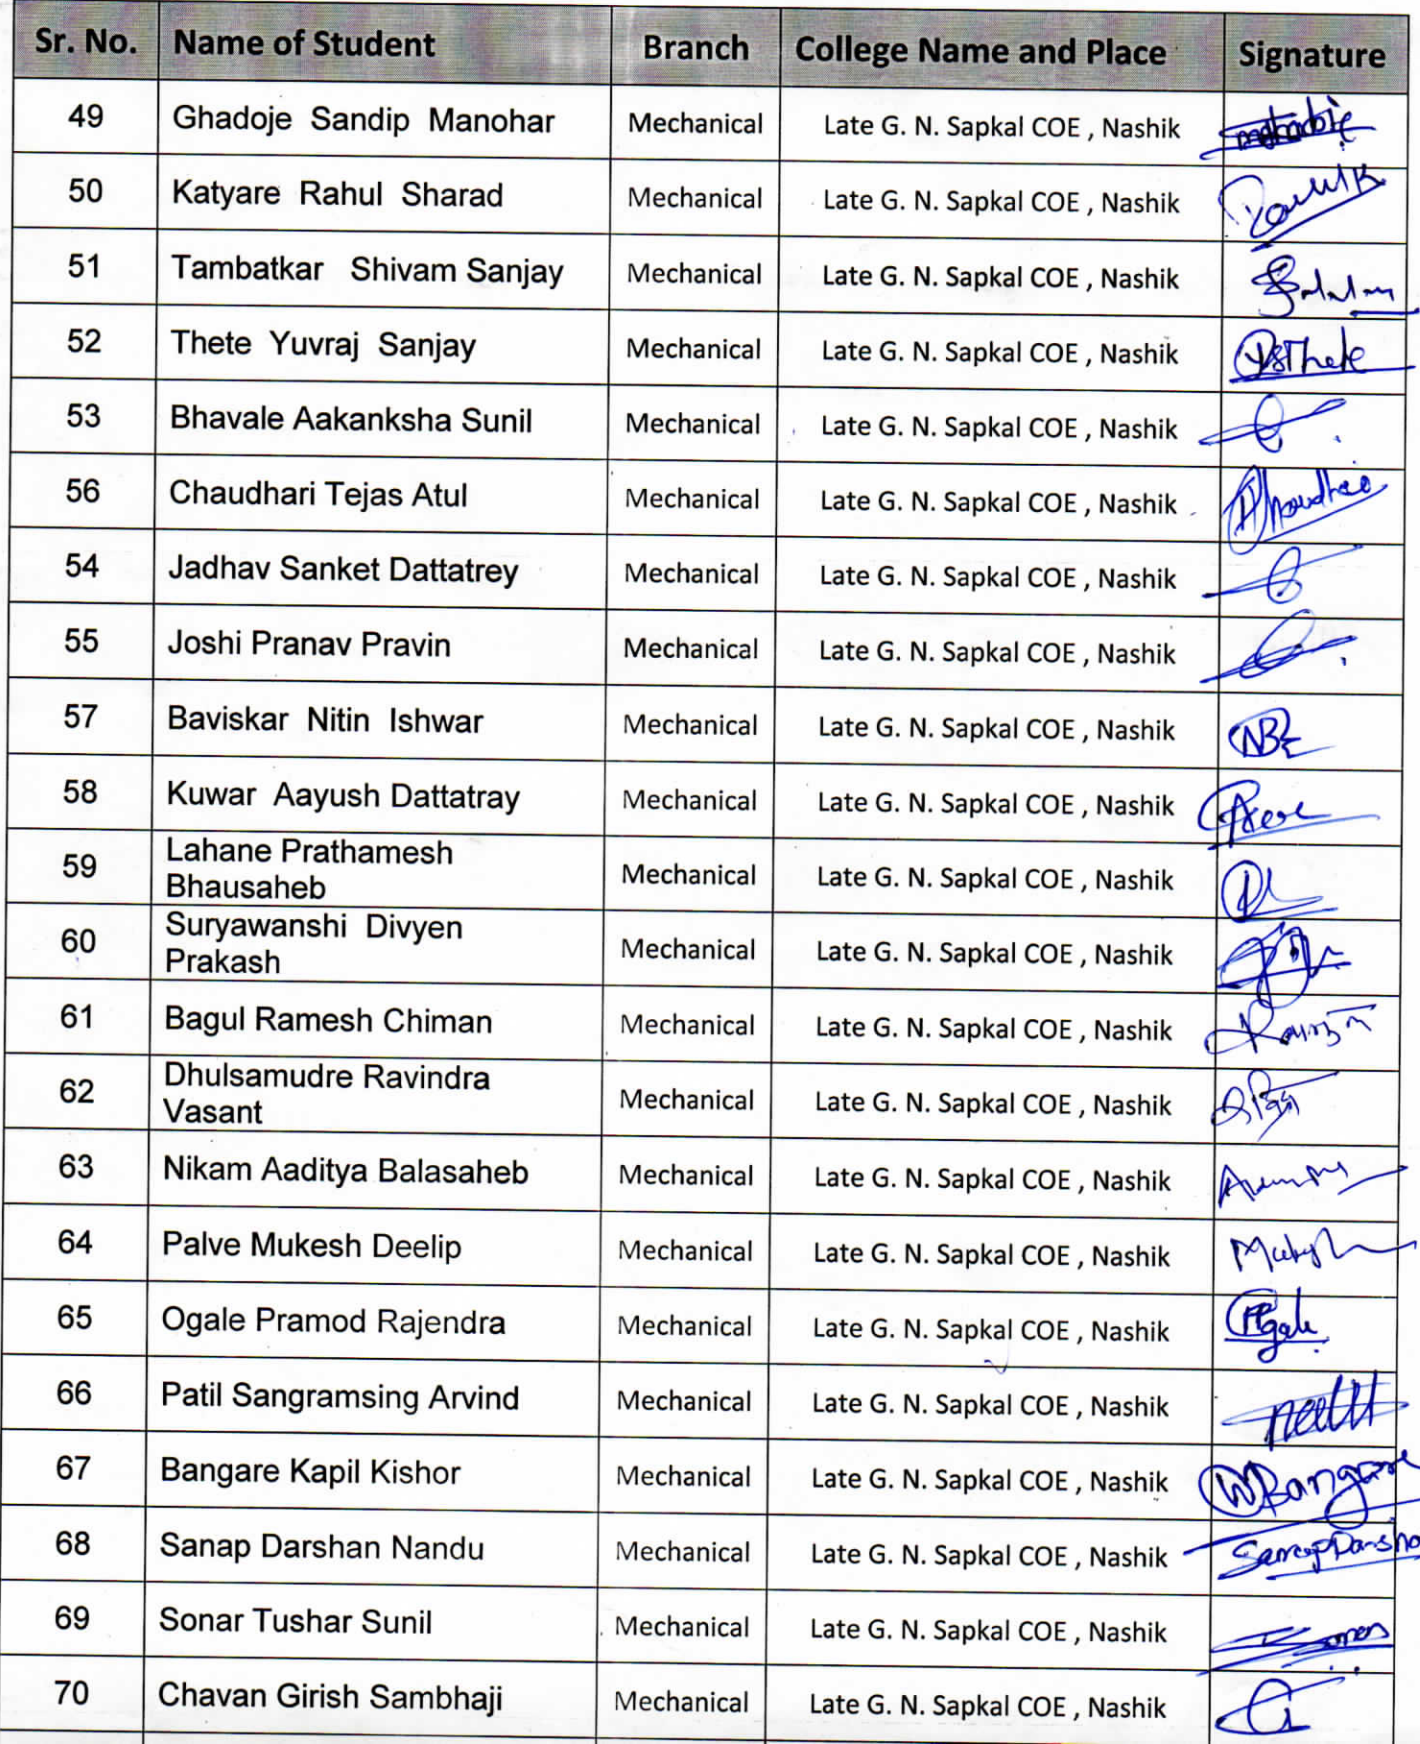 Sr. No. Name of Student Branch College Name and Place Signature
49 Ghadoje Sandip Manohar Mechanical Late G. N. Sapkal COE , Nashik
50 Katyare Rahul Sharad Mechanical Late G. N. Sapkal COE , Nashik
51 Tambatkar Shivam Sanjay Mechanical Late G. N. Sapkal COE , Nashik
52 Thete Yuvraj Sanjay Mechanical Late G. N. Sapkal COE , Nashik YSThete
53 Bhavale Aakanksha Sunil Mechanical Late G. N. Sapkal COE , Nashik
56 Chaudhari Tejas Atul Mechanical Late G. N. Sapkal COE , Nashik
54 Jadhav Sanket Dattatrey Mechanical Late G. N. Sapkal COE , Nashik
55 Joshi Pranav Pravin Mechanical Late G. N. Sapkal COE , Nashik
57 Baviskar Nitin Ishwar Mechanical Late G. N. Sapkal COE , Nashik
58 Kuwar Aayush Dattatray Mechanical Late G. N. Sapkal COE , Nashik
59 Lahane Prathamesh Mechanical Late G. N. Sapkal COE , Nashik
Bhausaheb
60 Suryawanshi Divyen Mechanical Late G. N. Sapkal COE , Nashik
Prakash
61 Bagul Ramesh Chiman Mechanical Late G. N. Sapkal COE , Nashik
62 Dhulsamudre Ravindra Mechanical Late G. N. Sapkal COE , Nashik
Vasant
63 Nikam Aaditya Balasaheb Mechanical Late G. N. Sapkal COE , Nashik
64 Palve Mukesh Deelip Mechanical Late G. N. Sapkal COE , Nashik
65 Ogale Pramod Rajendra Mechanical Late G. N. Sapkal COE , Nashik
66 Patil Sangramsing Arvind Mechanical Late G. N. Sapkal COE , Nashik
67 Bangare Kapil Kishor Mechanical Late G. N. Sapkal COE , Nashik
68 Sanap Darshan Nandu Mechanical Late G. N. Sapkal COE , Nashik
69 Sonar Tushar Sunil Mechanical Late G. N. Sapkal COE , Nashik
70 Chavan Girish Sambhaji Mechanical Late G. N. Sapkal COE , Nashik